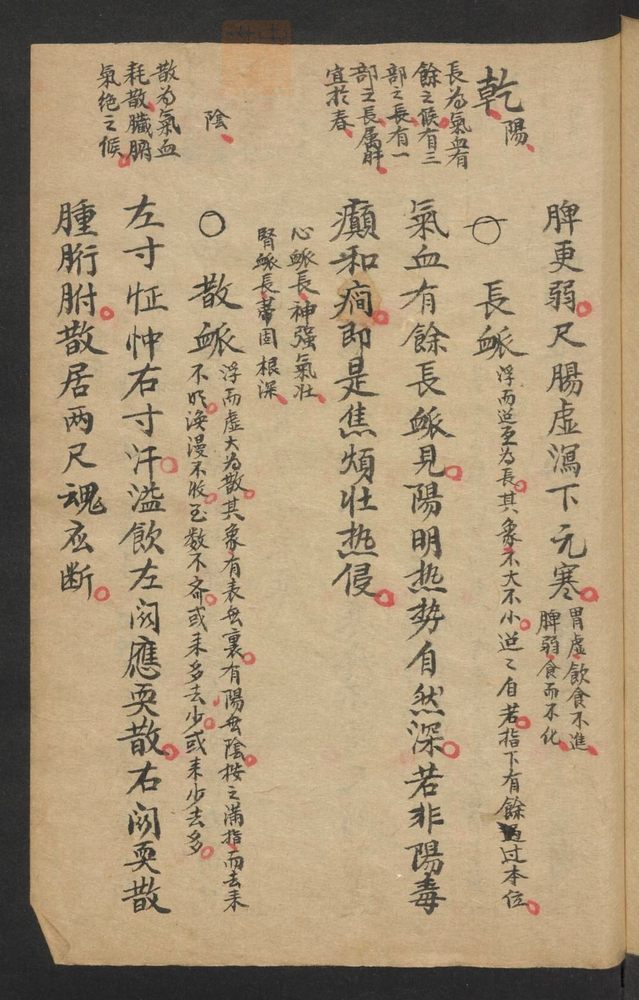 脾更弱尺腸虛瀉下元寒
胃虛飲食不進
脾弱食而不化
乾陽
長為氣血有
餘之候有三
部之長有一
部之長屬肝
宜於春
長䘑
浮而迢亙為長其象不大不小迢〻自若指下有餘過过本位
氣血有餘長䘑見陽明热势自然深若非陽毒
癲和癎即是焦煩壮热侵
心䘑長神强氣壮
腎䘑長蒂固根深
陰
散為氣血
耗散臟腑
氣绝之候
散䘑
浮而虛大為散其象有表無裏有陽無陰按之满指而去来
不明涣漫不收至数不齐或来多去少或来少去多
左寸怔忡右寸汗溢飲左関應耎散右関耎散
腫胻胕散居两尺魂應断